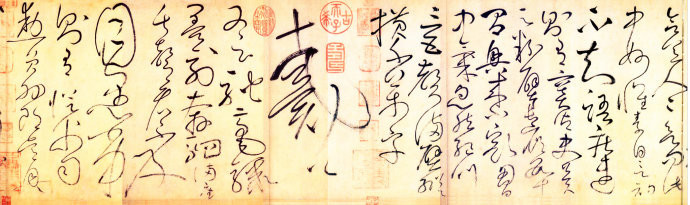 合宜人人欲問此
中妙懷素自言初
不知語疾速
則有竇御史冀
云粉壁長廊數十
間興來小豁胸
中氣忽然絕叫
三五聲滿壁縱
橫千萬字
戴公
又云馳毫驟
墨列奔駟滿座
失聲看不及
目愚劣
則有從父司
勳員外郎吳興